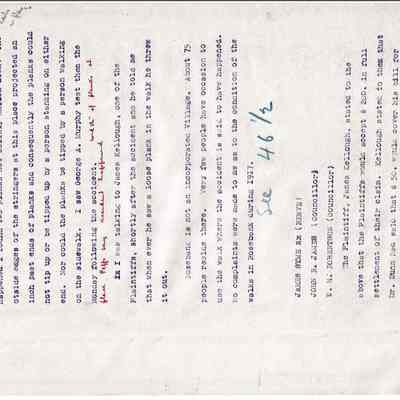 outside edges of the stringers at this place projected an
inch past ends of planks and consequently the planks could
not tip up or be tipped up by a person standing on either
end. Nor could the planks be tipped by a person walking
on the sidewalk. I saw George A. Murphy test them the
Monday following the accident.
place Peffery accident happened
Ex I was talking to James Kellough, one of the
Plaintiffs, shortly after the accident and he told me
that when ever he saw a loose plank in the walk he threw
it out.
Rosebank is not an incorporated Village. About 75
people reside there. Very few people have occasion to
use the walk where the accident is said to have happened.
No complaints were made to me as to the condition of the
walks in Rosebank during 1917.
See 46 1/2
JAMES SYME Ex (REEVE)
JOHN R. JAMES (councillor)
T. H. ROBERTSON (councillor)
The Plaintiff, James Kellough, stated to the
above that the Plaintiffs would accept $ 200. in full
settlement of their claim. Kellough stated to them that
Mr. Dunn had said that $ 50. would cover his bill for